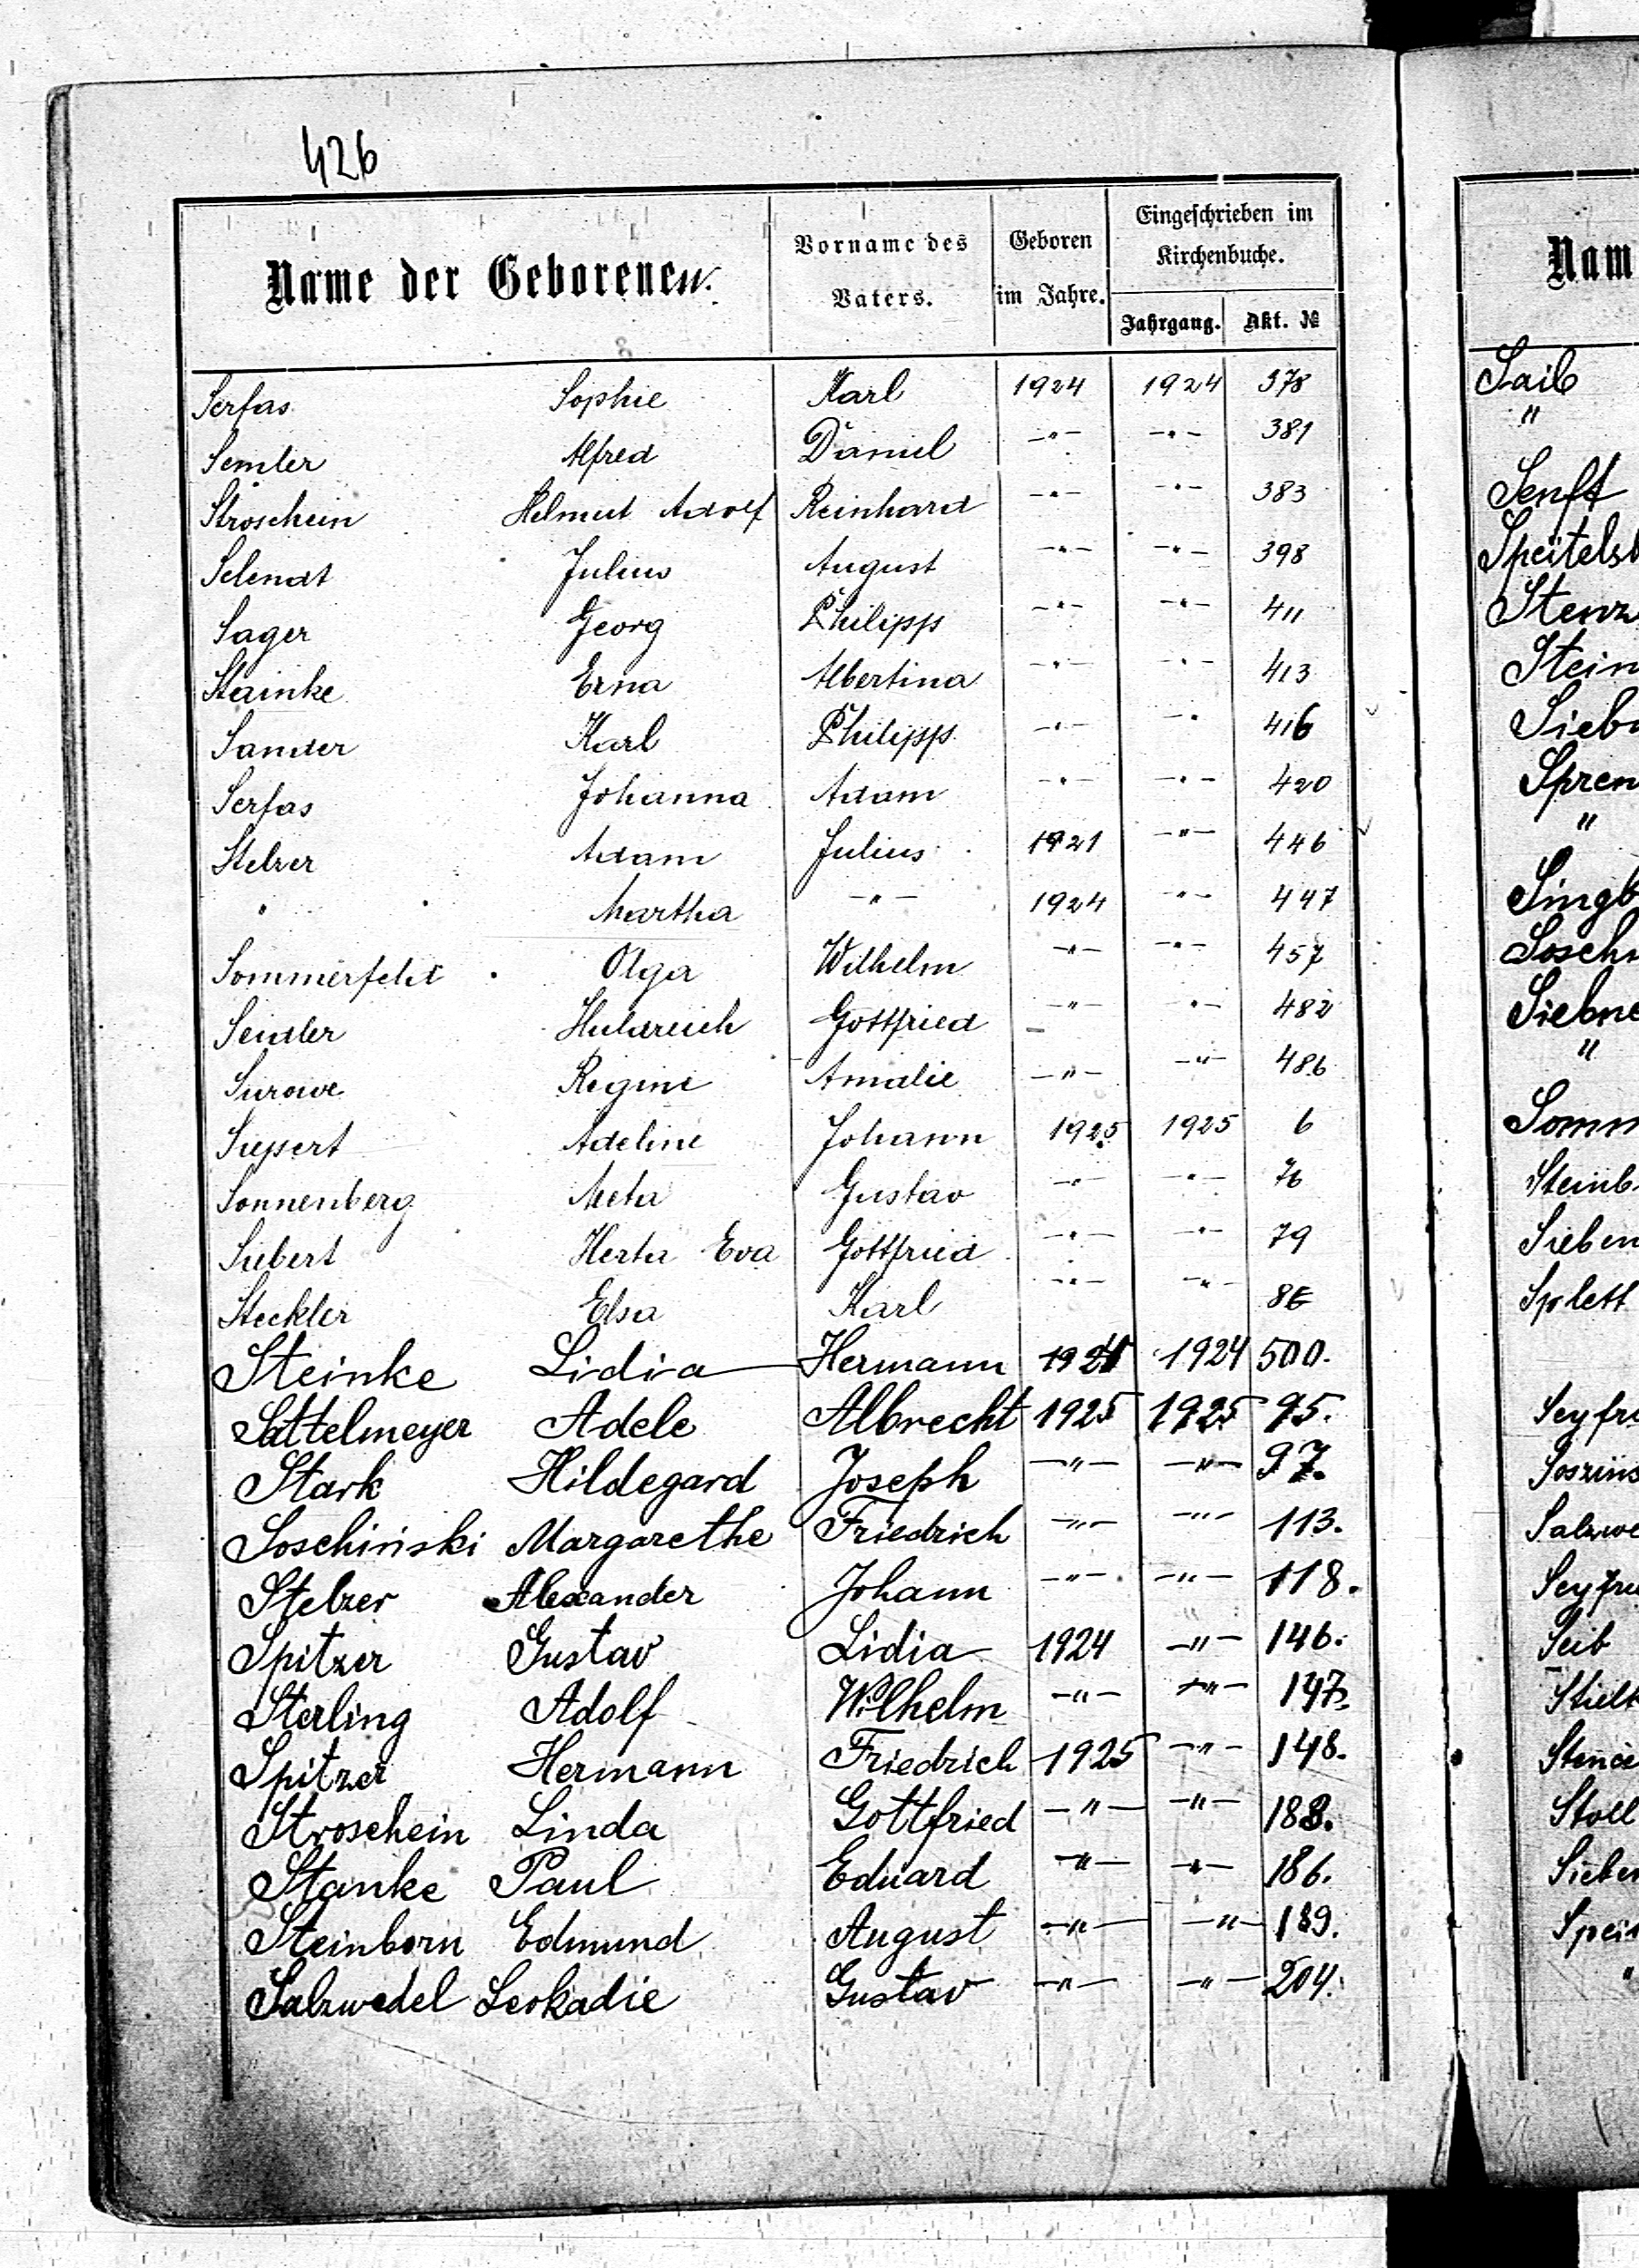 426
Name der Geborenen.
Vorname des Vaters.
Geboren im Jahre.
Eingeschrieben im Kirchenbuche.
Jahrgang. Akt. №
Serfas Sophie Karl 1924 1924 378
Semler Alfred Daniel -"- -"- 381
Stroschein Helmut Adolf Reinhard -"- -"- 383
Selendt Julius August -"- -"- 398
Sager Georg Philipp -"- -"- 411
Stainke Erna Albertina -"- -"- 413
Sander Karl Philipp -"- -" 416
Serfas Johanna Adam -"- -"- 420
Stelzer Adam Julius 1921 -"- 446
" Martha -"- 1924 -"- 447
Sommerfeldt Olga Wilhelm -"- -"- 457
Seidler Huldreich Gottfried -"- -"- 482
Surowe Regine Amalie -"- -"- 486
Siepert Adeline Johann 1925 1925 6
Sonnenberg Meta Gustav -"- -"- 76
Siebert Herta Eva Gottfried -"- -"- 79
Steckler Elsa Karl -"- -"- 86
Steinke Lidia Hermann 1924 1924 500.
Sattelmeyer Adele Albrecht 1925 1925 95.
Stark Hildegard Joseph -"- -"- 97.
Soschinski Margarethe Friedrich -"- -"- 113.
Stelzer Alexander Johann -"- -"- 118.
Spitzer Gustav Lidia 1924 -"- 146.
Sterling Adolf Wilhelm -"- -"- 147.
Spitzer Hermann Friedrich 1925 -"- 148.
Stroschein Linda Gottfried -"- -"- 183.
Stanke Paul Eduard -"- -"- 186.
Steinborn Edmund August -"- -"- 189.
Salzwedel Leokadie Gustav -"- -"- 204.
Nam
Saib
"
Senft
Speitelsb
Stenz
Stein
Sieb
Spren
"
Singb
Sosch
Siebne
"
Somm
Steinb
Sieben
Splett
Seyfri
Soszins
Salzwe
Seyfri
Seib
Stoll
Sieben